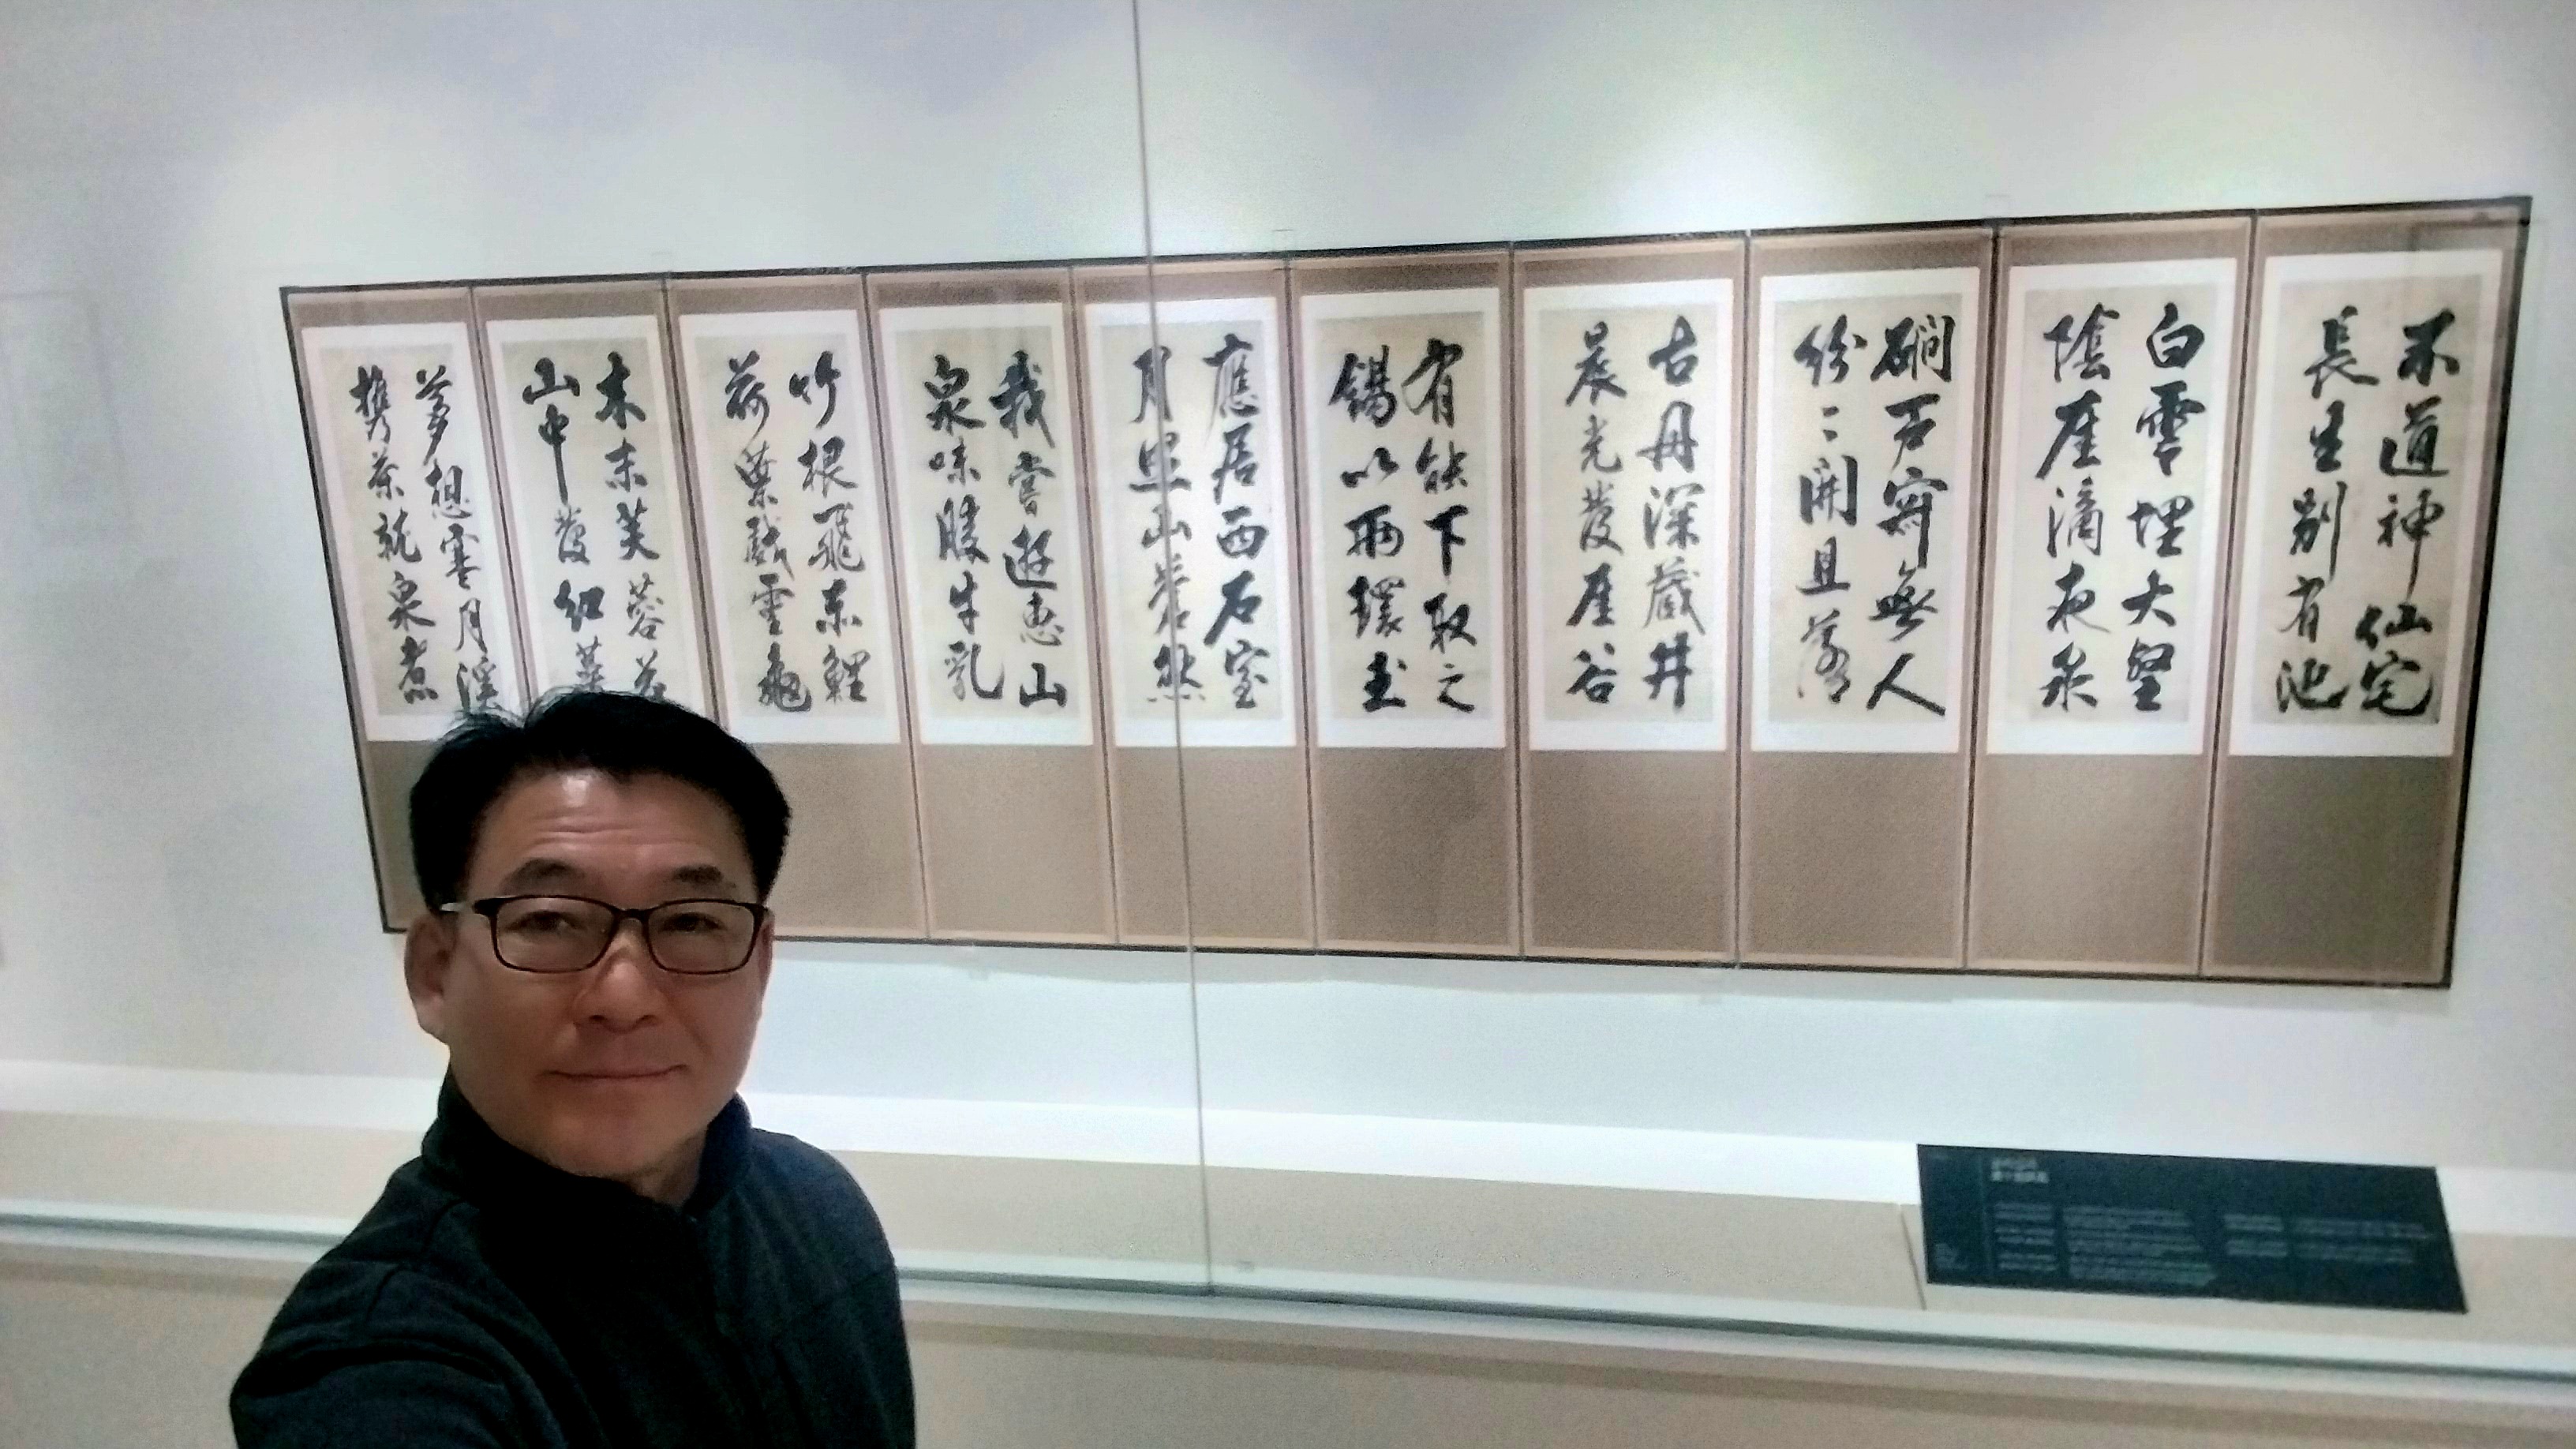 不道神仙宅
長生別有池
白雲埋大壑
陰崖滴夜泉
磵戶寂無人
紛〻開且落
古丹深藏井
晨光發崖谷
有能下取之
錫以兩環玉
應居西石室
月照山蒼然
我嘗遊惠山
泉味勝牛乳
竹根飛東鯉
荷葉戲靈龜
木末芙蓉花
山中發紅萼
夢想寒月溪
携茶就泉煮